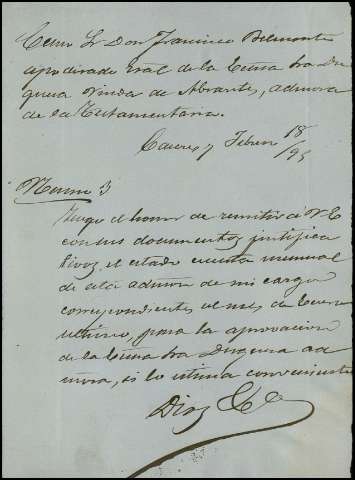 Excmo Sr Don Francisco Belmonte
apoderado Gral de la Excma Sra Du
quesa Viuda de Abrantes, admora
de la Testamentaria.
Caceres y Febrero 18/95
Numo 3
Tengo el honor de remitir á V.E
con sus documentos justifica
tivos, el estado cuenta mensual
de esta admon de mi cargo
correspondiente al mes de Enero
ultimo, para la aprovacion
de la Excma Sra Duquesa ad
mora, si lo estima conveniente
Dios &a